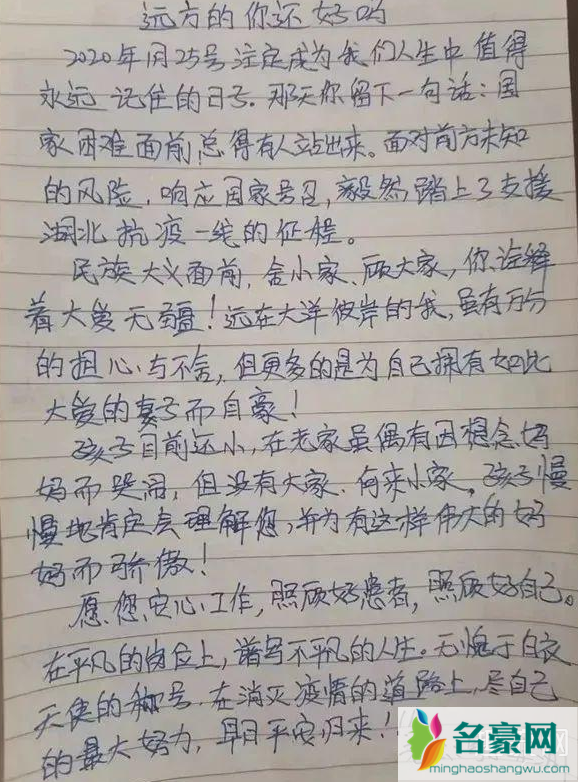 远方的你还好吗
2020年1月25号注定成为我们人生中值得
永远记住的日子。那天你留下一句话：国
家困难面前，总得有人站出来。面对前方未知
的风险，响应国家号召，毅然踏上了支援
湖北抗疫一线的征程。
民族大义面前，舍小家、顾大家，你诠释
着大爱无疆！远在大洋彼岸的我，虽有万分
的担心与不舍，但更多的是为自己拥有如此
大爱的妻子而自豪！
孩子目前还小，在老家虽偶有因想念妈
妈而哭闹，但没有大家，何来小家，孩子慢
慢地肯定会理解您，并为有这样伟大的妈
妈而骄傲！
愿您安心工作，照顾好患者，照顾好自己。
在平凡的岗位上，谱写不平凡的人生。无愧于白衣
天使的称号，在消灭疫情的道路上，尽自己
的最大努力，早日平安归来！
名豪网
minghaoshangwu.com